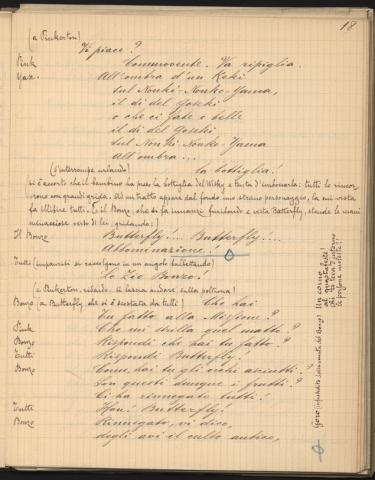 18
(a Pinkerton)
Vi piace?
Pink Commovente. Va ripiglia.
Yax. All'ombra d'un Keki
sul Nonki-Nonko-Yama,
il dì del Goseki
o che ci fate o belle
il dì del Goseki
sul Nonki-Nonko-Yama
all'ombra...
(s'interrompe urlando) La bottiglia!
(si è accorto che il bambino ha preso la bottiglia del Wisky e tenta d'imboccarla: tutti lo rincor
rono con grandi grida. Ad un tratto appare dal fondo uno strano personaggio, la cui vista
fa allibire tutti. È il Bonzo, che si fa innanzi furibondo e vista Butterfly, stende le mani
minacciose verso di lei, gridando:)
Il Bonzo Butterfly!... Butterfly!...
Abbominazione!
Tutti (impauriti si raccolgono in un angolo balbettando)
Lo Zio Bonzo!
(a Pinkerton, ridendo, si lascia andare sulla poltrona)
Bonzo (a Butterfly che si è scostata da tutti) Che hai
tu fatto alla Missione?
Pink Che mi strilla quel matto?
Bonzo Rispondi, che hai tu fatto?
Tutti Rispondi Butterfly!
Bonzo Come, hai tu gli occhi asciutti?
Son questi dunque i frutti?
Ci ha rinnegato tutti!
Tutti Hou! Butterfly!
Bonzo Rinnegato, vi dico,
degli avi il culto antico,
Goro (infastidito dalla venuta del Bonzo) Un corno
al guastafeste!
Chi ci leva d'intorno
le persone moleste?!!